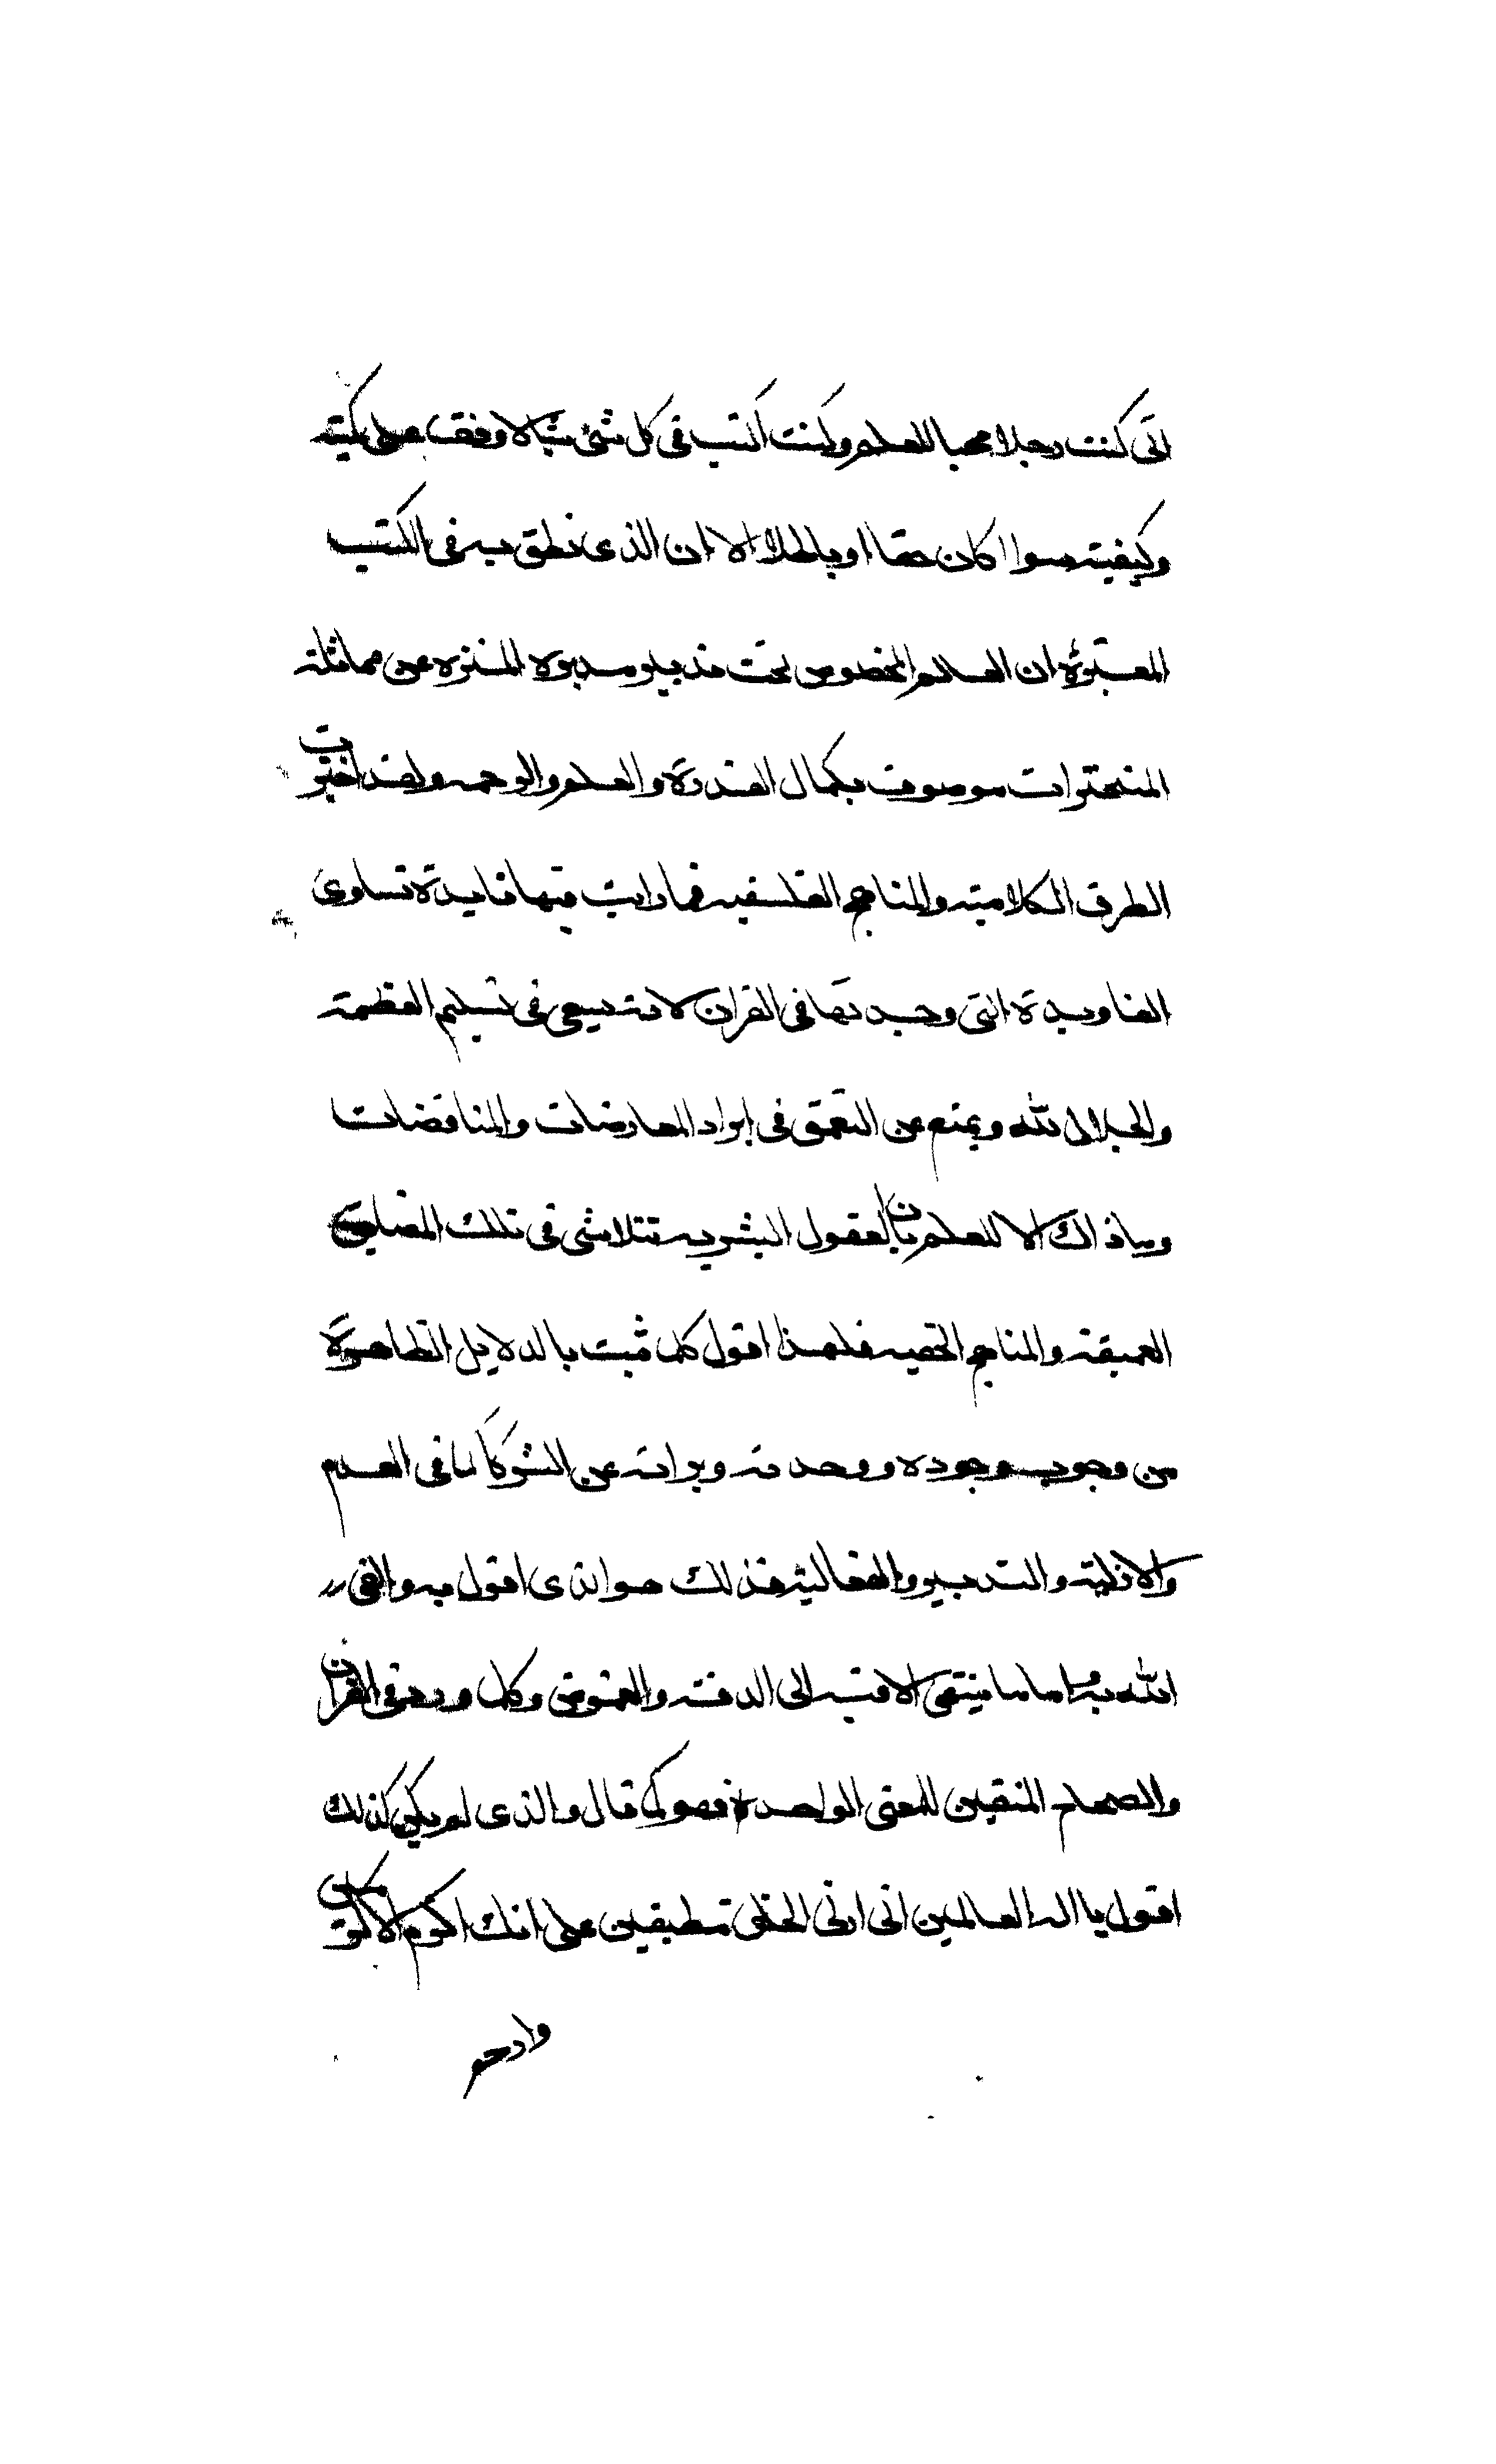 انى كنت رجلا محبا للعلم وكنت اكتب فى كل شئ شيالا وقف على كميته
وكيفيته سوا اكان حقا او باطلا الا ان الذى نطق به فى الكتب
المعتبرة ان العالم المخصوص تحت تدبير مدبره المنزه عن مماثلة
المتحيزات موصوف بكمال القدرة والعلم والرحمه ولقد اختبرت
الطرق الكلاميته والمناهج الفلسفيه فما رايت فيها فايدة تساوى
الفاويدة التى وجدتها فى القران لانه يسعى فى تسليم العظمة
والجلال لله ويمنع عن التعمق فى ايراد المعارضات والمناقضات
وماذاك الا للعلم بان العقول البشريه تتلاشى فى تلك المضايق
العميقة والمناهج الخفيه فلهذا اقول كلما ثبت بالدلايل الظاهرة
من وجوب وجوده ووحدته وبراته عن الشركا فى القدم
والازلية والتدبير والفعاليه فذلك هو الذى اقول به والقى
الله به واما ما ينتهى الامر فيه الى الدقة والغموض وكلما ورد فى القران
والصحاح المتعين للمعنى الواحدة فهو كما قال والذى لم يكن كذلك
اقول يا اله العالمين انى ارى الخلق مطبقين على انك اكرم الاكرمين
وارحم